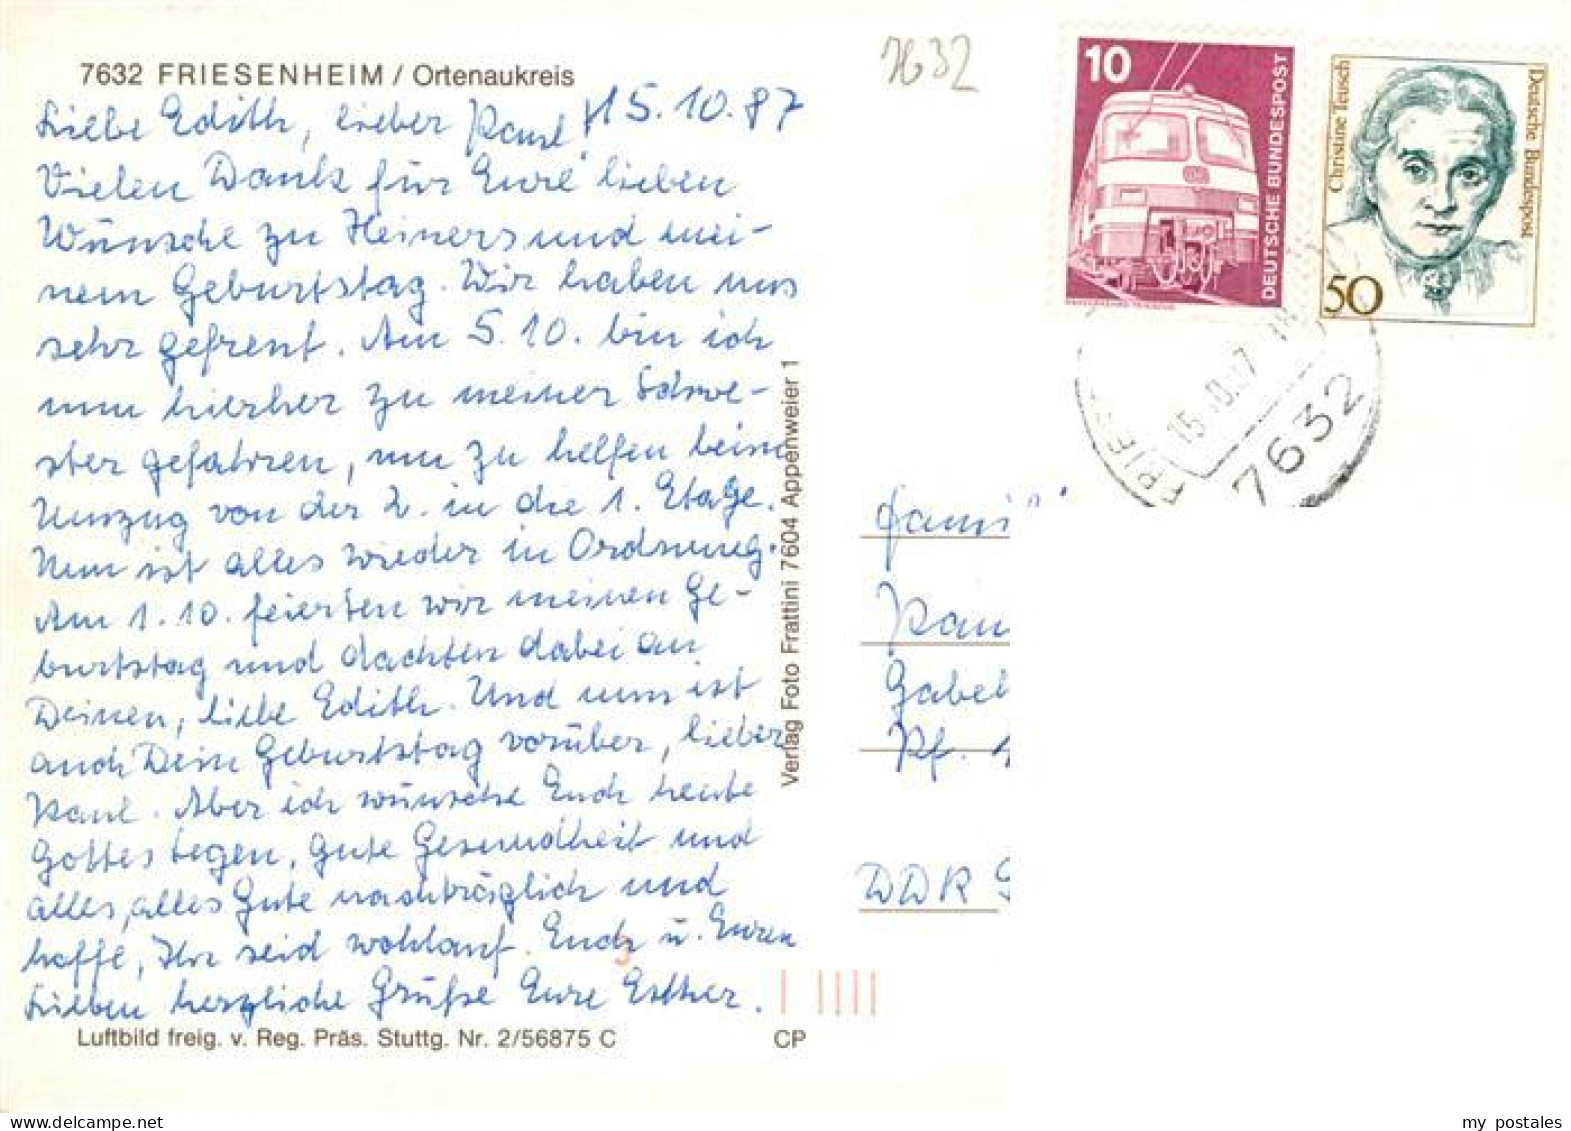 7632 FRIESENHEIM / Ortenaukreis
Liebe Edith, lieber Paul! 15.10.87
Vielen Dank für Eure lieben
Wünsche zu Heiners und mei-
nem Geburtstag. Wir haben uns
sehr gefreut. Am 5.10. bin ich
nun hierher zu meiner Schwe-
ster gefahren, um zu helfen beim
Umzug von der 2. in die 1. Etage.
Nun ist alles wieder in Ordnung.
Am 1.10. feierten wir meinen Ge-
burtstag und dachten dabei an
Deinen, liebe Edith. Und nun ist
auch Dein Geburtstag vorüber, lieber
Paul. Aber ich wünsche Euch heute
Gottes Segen, gute Gesundheit und
alles, alles Gute nachträglich und
hoffe, Ihr seid wohlauf. Euch u. Euren
Lieben herzliche Grüße Eure Esther.
Luftbild freig. v. Reg. Präs. Stuttg. Nr. 2/56875 C
CP
Verlag Foto Frattini 7604 Appenweier 1
7632
10
DEUTSCHE BUNDESPOST
Christine Teusch
Deutsche Bundespost
50
7632
Pau
Gabel
Pf. 1
DDR
my postales